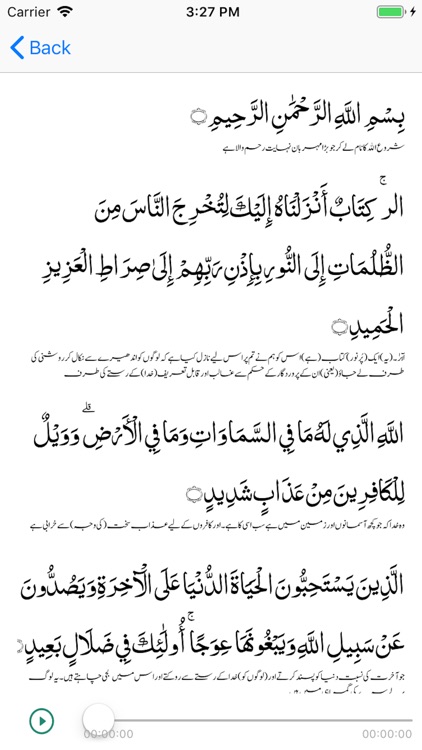 Carrier 3:27 PM
Back
بِسْمِ اللَّهِ الرَّحْمَٰنِ الرَّحِيمِ
شروع الله کا نام لے کر جو بڑا مہربان نہایت رحم والا ہے
الر ۚ كِتَابٌ أَنْزَلْنَاهُ إِلَيْكَ لِتُخْرِجَ النَّاسَ مِنَ
الظُّلُمَاتِ إِلَى النُّورِ بِإِذْنِ رَبِّهِمْ إِلَىٰ صِرَاطِ الْعَزِيزِ
الْحَمِيدِ
آلرٰ۔ (یہ) ایک (پُرنور) کتاب (ہے) اس کو ہم نے تم پر اس لیے نازل کیا ہے کہ لوگوں کو اندھیرے سے نکال کر روشنی کی
طرف لے جاؤ (یعنی) ان کے پروردگار کے حکم سے غالب اور قابل تعریف (خدا) کے رستے کی طرف
اللَّهِ الَّذِي لَهُ مَا فِي السَّمَاوَاتِ وَمَا فِي الْأَرْضِ ۗ وَوَيْلٌ
لِلْكَافِرِينَ مِنْ عَذَابٍ شَدِيدٍ
وہ خدا کہ جو کچھ آسمانوں اور زمین میں ہے سب اسی کا ہے۔ اور کافروں کے لیے عذاب سخت (کی وجہ) سے خرابی ہے
الَّذِينَ يَسْتَحِبُّونَ الْحَيَاةَ الدُّنْيَا عَلَى الْآخِرَةِ وَيَصُدُّونَ
عَنْ سَبِيلِ اللَّهِ وَيَبْغُونَهَا عِوَجًا ۚ أُولَٰئِكَ فِي ضَلَالٍ بَعِيدٍ
جو آخرت کی نسبت دنیا کو پسند کرتے اور (لوگوں کو) خدا کے رستے سے روکتے اور اس میں کجی چاہتے ہیں۔ یہ لوگ
00:00:00 00:00:00